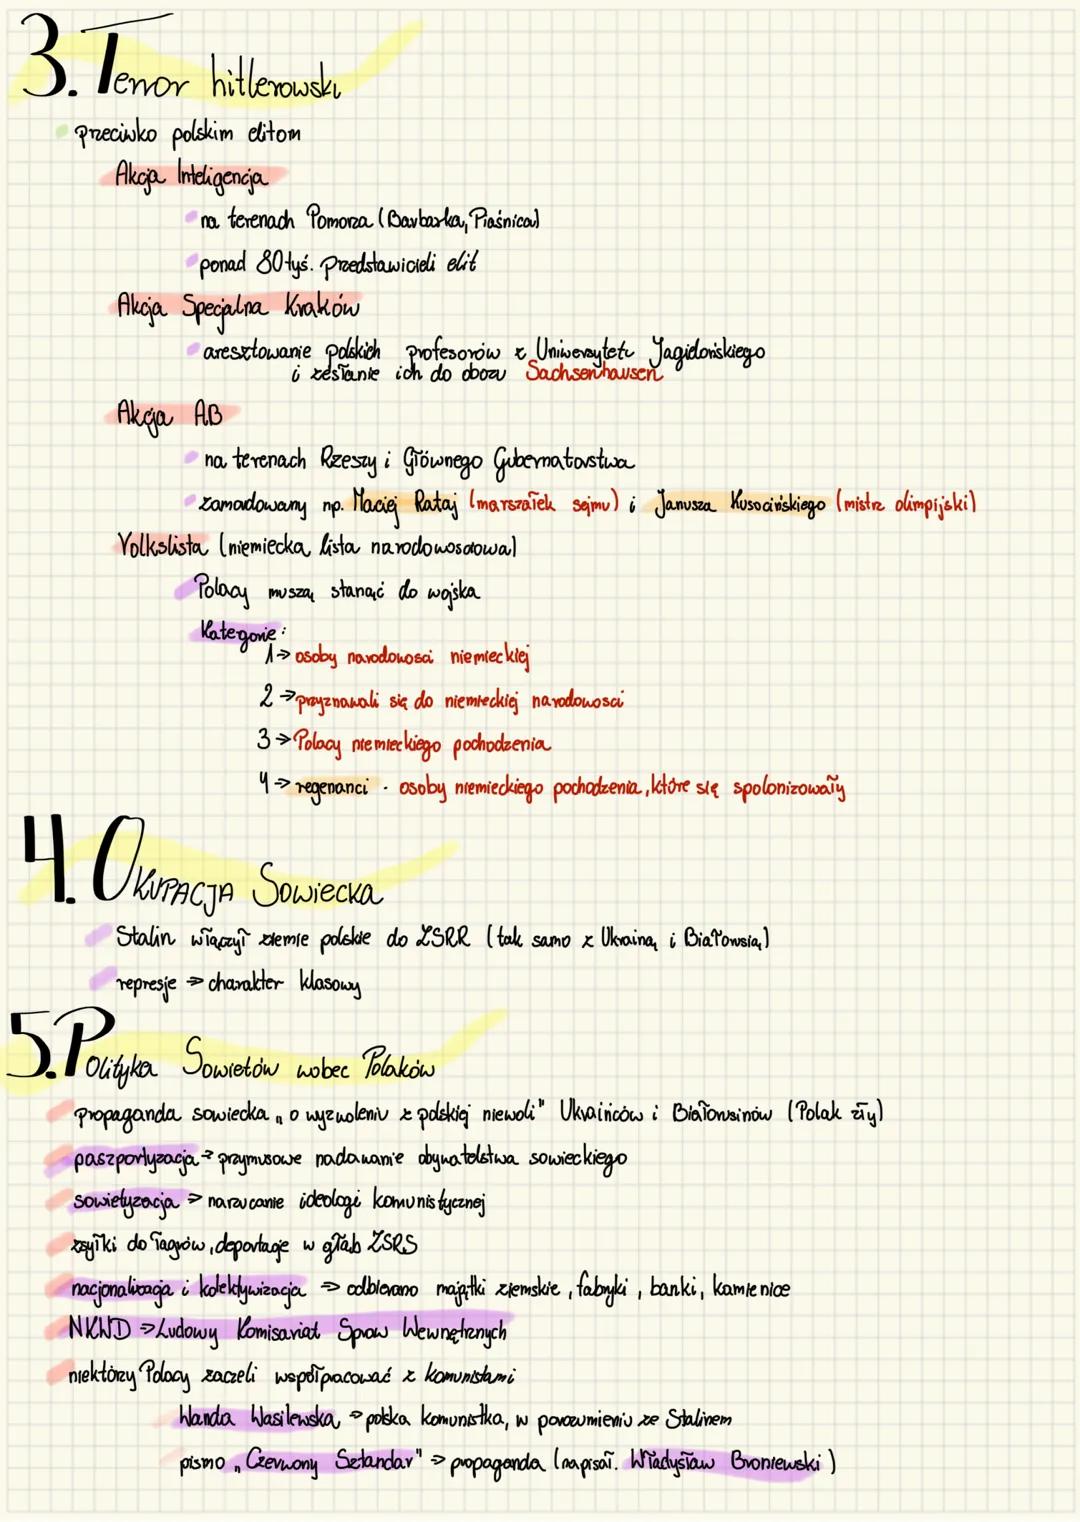 3. Terror hitlerowski
przeciwko polskim elitom
Akcja Inteligencja
na terenach Pomorza (Barbarka, Piaśnica)
ponad 80 tyś. przedstawicieli elit
Akcja Specjalna Kraków
aresztowanie polskich profesorów z Uniwersytetu Jagielońskiego
i zesłanie ich do obozu Sachsenhausen
Akcja AB
na terenach Rzeszy i Głównego Gubernatorstwa
zamordowany np. Maciej Rataj (marszałek sejmu) i Janusza Kusocińskiego (mistrz olimpijski)
Volkslista (niemiecka lista narodowosciowa)
Polacy muszą stanąć do wojska
Kategorie:
1 → osoby narodowosci niemieckiej
2 → przyznawali się do niemieckiej narodowosci
3 → Polacy niemieckiego pochodzenia
4 → regenanci - osoby niemieckiego pochodzenia, które się spolonizowały
4. OKUPACJA SOWIECKA
Stalin włączył ziemie polskie do ZSRR (tak samo z Ukrainą i Białorusią)
represje ⇒ charakter klasowy
5. Polityka Sowietów wobec Polaków
propaganda sowiecka „o wyzwoleniu z polskiej niewoli" Ukraińców i Białorusinów (Polak zły)
paszportyzacja → przymusowe nadawanie obywatelstwa sowieckiego
sowietyzacja ⇒ narzucanie ideologi komunistycznej
zsyłki do łagrów, deportacje w głąb ZSRS
nacjonalizacja i kolektywizacja ⇒ odbierano majątki ziemskie, fabryki, banki, kamienice
NKWD ⇒ Ludowy Komisariat Spraw Wewnętrznych
niektórzy Polacy zaczeli współpracować z komunistami
Wanda Wasilewska ⇒ polska komunistka, w porozumieniu ze Stalinem
pismo „Czerwony Sztandar" ⇒ propaganda (napisał. Władysław Broniewski)